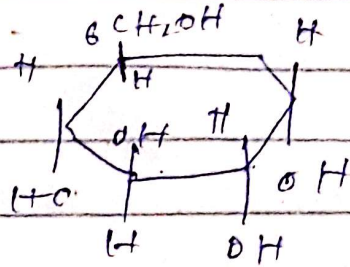 6 CH₂OH H
H H
OH H
HO OH
H OH